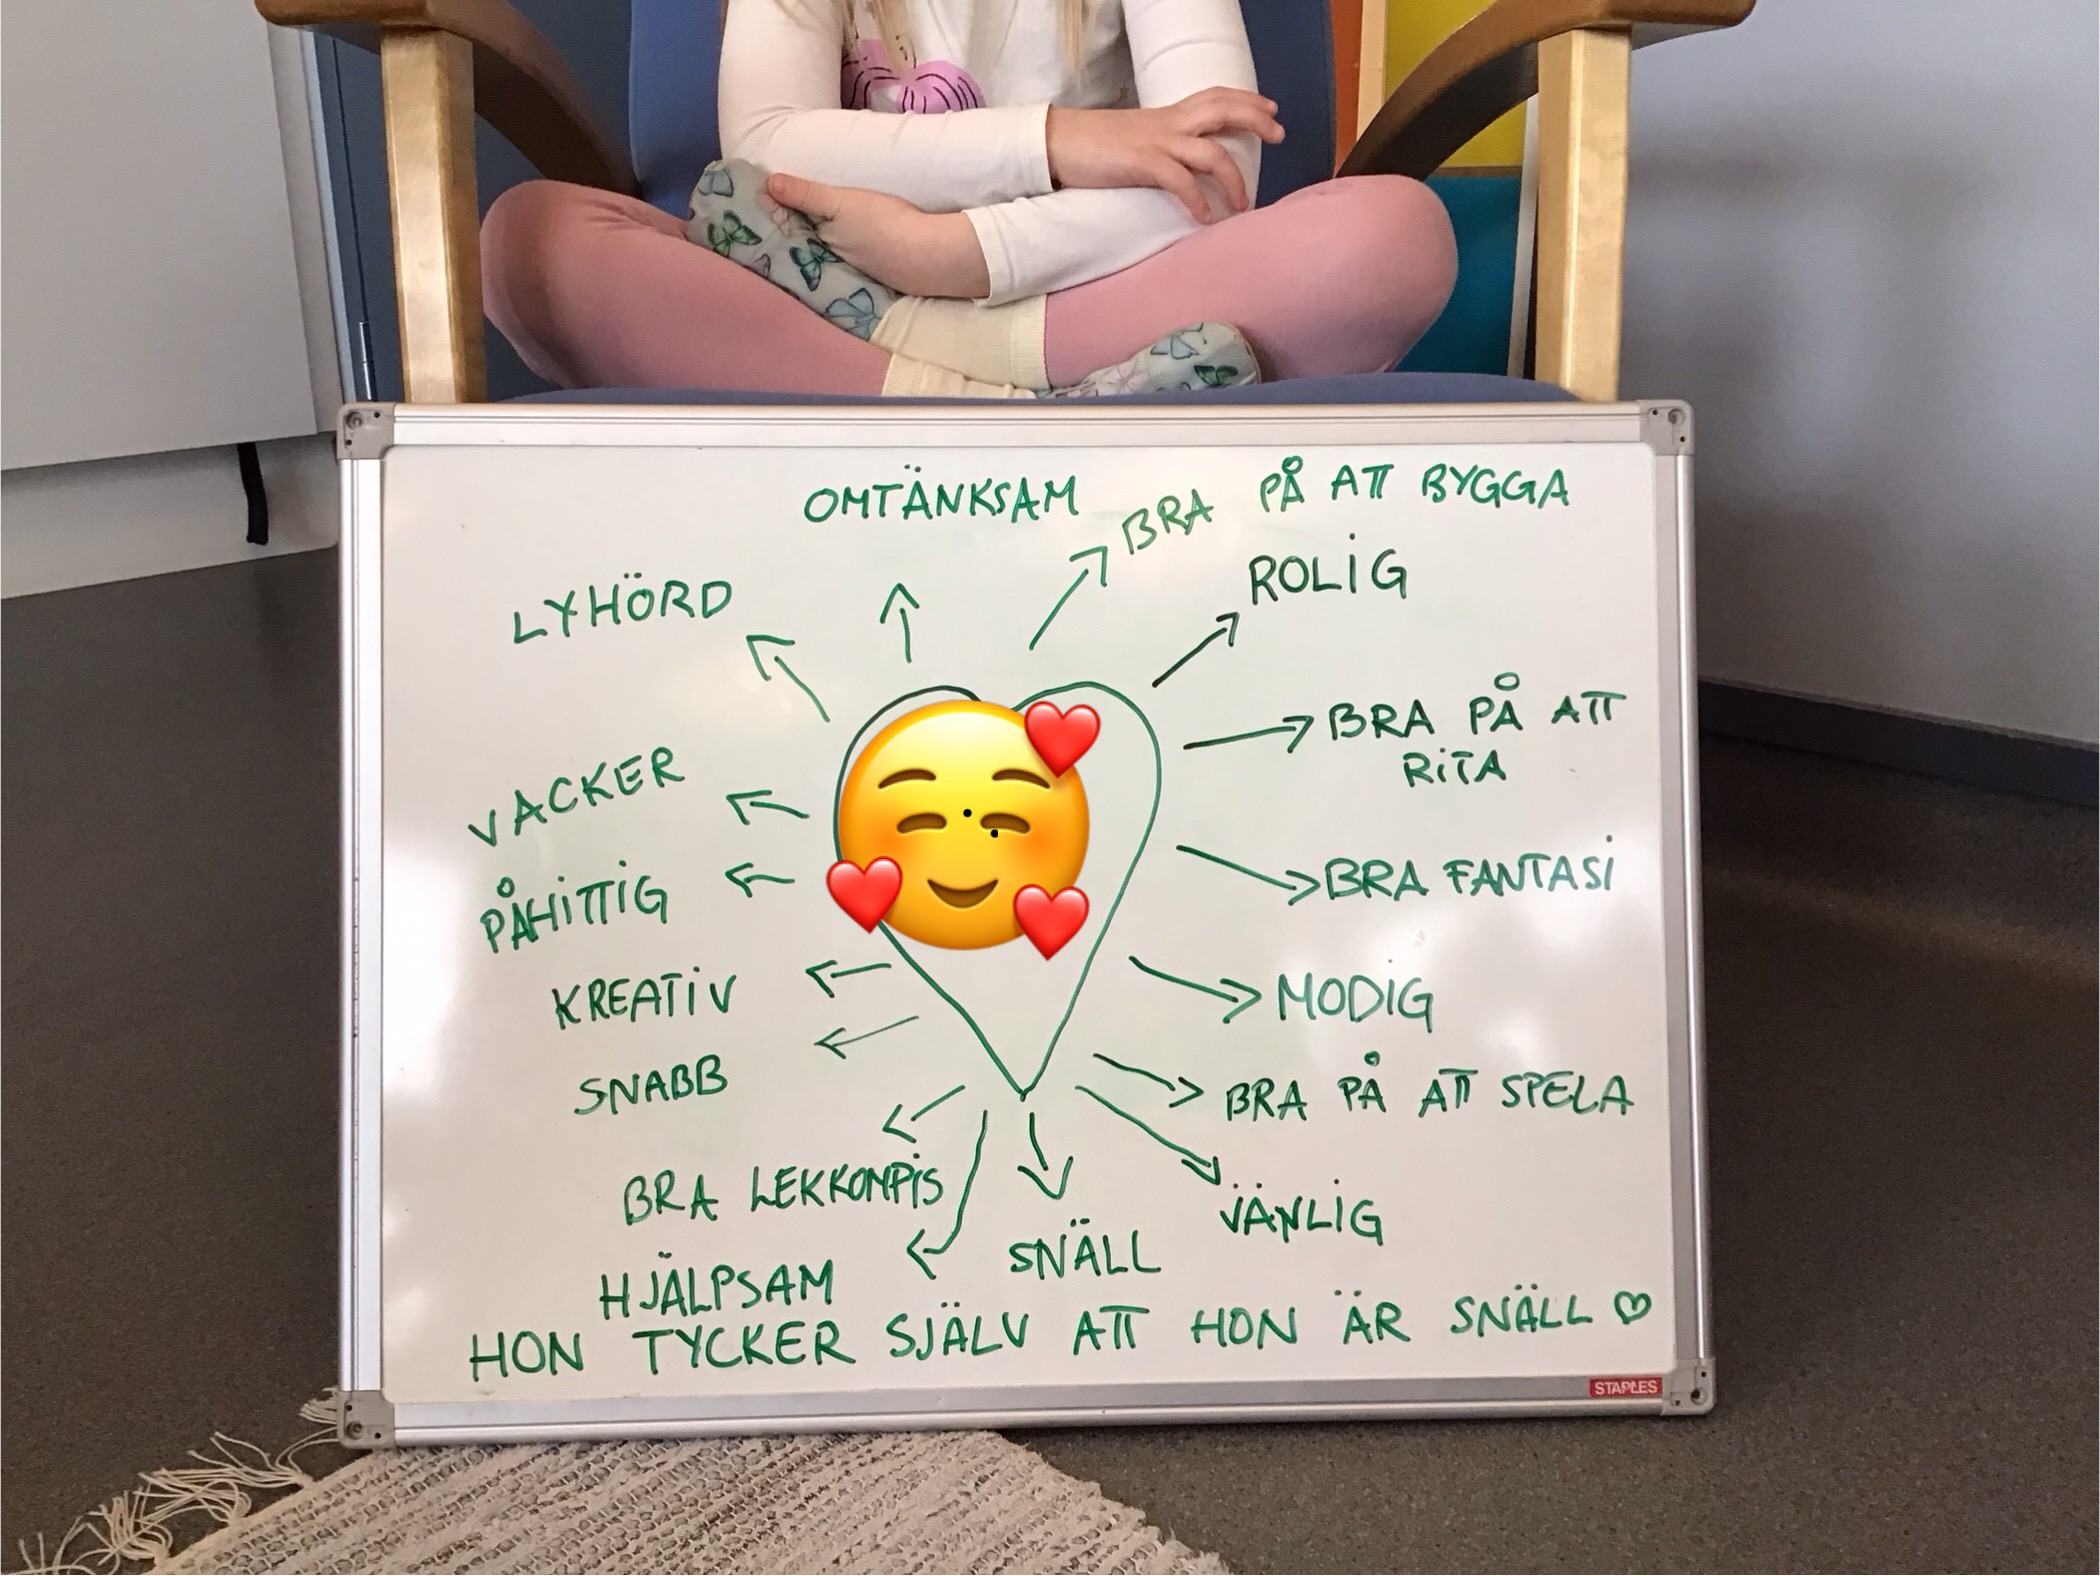 OMTÄNKSAM
BRA PÅ ATT BYGGA
LYHÖRD
ROLIG
BRA PÅ ATT
RITA
VACKER
PÅHITTIG
BRA FANTASI
KREATIV
MODIG
SNABB
BRA PÅ ATT SPELA
BRA LEKKOMPIS
VÄNLIG
SNÄLL
HJÄLPSAM
HON TYCKER SJÄLV ATT HON ÄR SNÄLL ♡
STAPLES